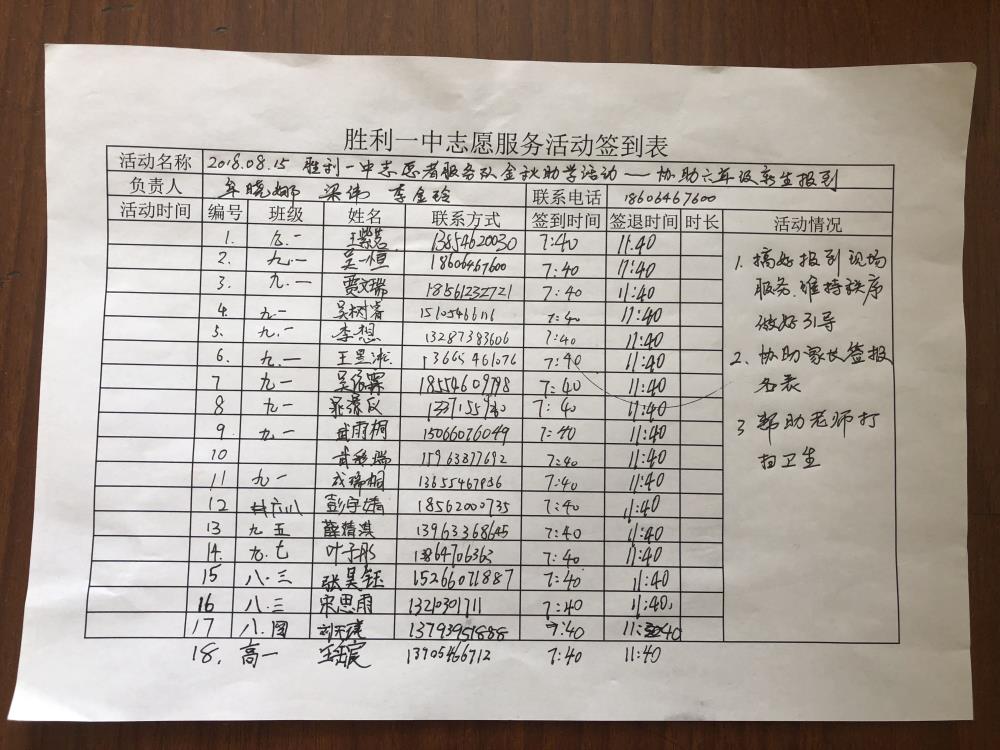 胜利一中志愿服务活动签到表
活动名称 2018.08.15 胜利一中志愿者服务队金秋助学活动——协助六年级新生报到
负责人 牟晓娜 梁伟 李金玲 联系电话 18606467600
活动时间 编号 班级 姓名 联系方式 签到时间 签退时间 时长 活动情况
1. 九.一 13854620030 7:40 11:40
2. 九.一 吴一恒 18606467600 7:40 11:40
3. 九.一 贾文瑞 18561232721 7:40 11:40
4. 九一 吴树睿 15105466116 7:40 11:40
5. 九.一 李想 13287383606 7:40 11:40
6. 九一 王昱冰 13665461076 7:40 11:40
7 九一 18554609798 7:40 11:40
8 九一 7:40 11:40
9 九一 武雨桐 15066076049 7:40 11:40
10 15963877692 7:40 11:40
11 九一 成瑞桐 13655467956 7:40 11:40
12 六八 彭宇婧 18562000735 7:40 11:40
13 九五 薛精淇 13963368645 7:40 11:40
14. 九.七 叶子彤 1864706363 7:40 11:40
15 八.三 张昊钰 15266071887 7:40 11:40
16 八.三 宋思雨 13210301711 7:40 11:40
17 八.四 13793951888 7:40 11:40
18. 高一 13905466712 7:40 11:40
1. 搞好报到现场
服务.维持秩序
做好引导
2. 协助家长签报
名表
3 帮助老师打
扫卫生